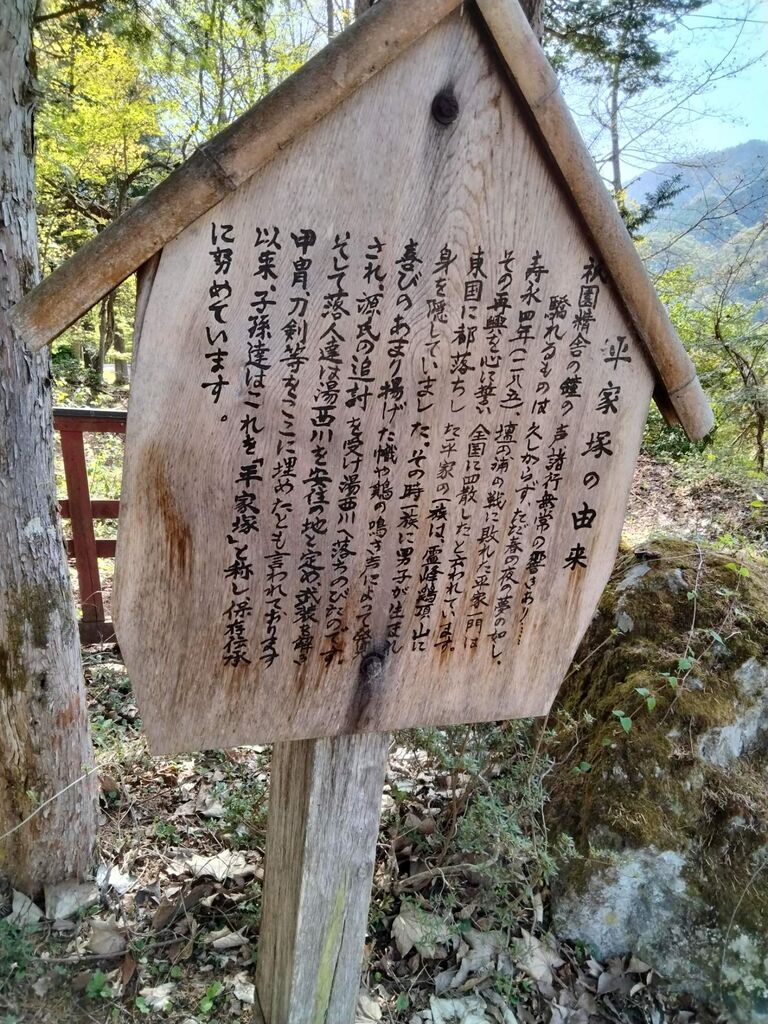 平家塚の由来
祇園精舎の鐘の声諸行無常の響きあり……
驕れるものは久しからずただ春の夜の夢の如し、
寿永四年(一一八五)壇の浦の戦に敗れた平家一門は
その再興を心に誓い全国に四散したと云われています。
東国に都落ちした平家の一族は、霊峰鶏頂山に
身を隠していました。その時一族に男子が生まれ
喜びのあまり揚げた幟や鶏の鳴き声によって発見
され、源氏の追討を受け湯西川へ落ちのびたのです。
そして落人達は湯西川を安住の地と定め武装を解き
甲冑、刀剣等をここに埋めたとも言われております
以来、子孫達はこれを「平家塚」と称し保存伝承
に努めています。